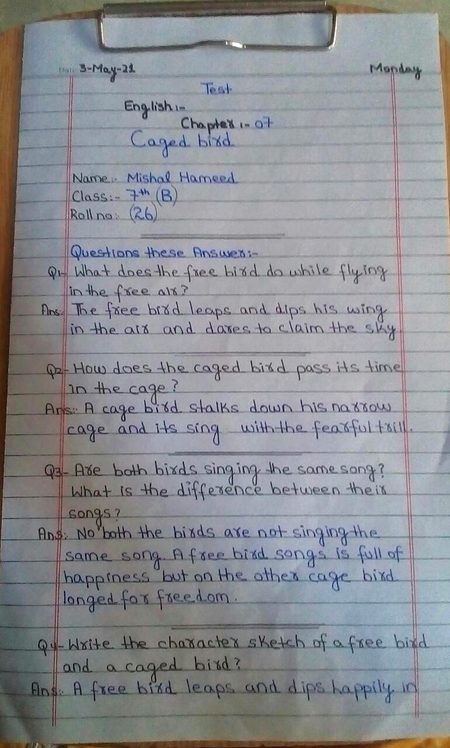 Date: 3-May-21 Monday
Test
English:-
Chapter :- 07
Caged bird
Name:- Mishal Hameed
Class:- 7th (B)
Roll no: (26)
Questions these Answer:-
Q1- What does the free bird do while flying
in the free air?
Ans: The free bird leaps and dips his wing
in the air and dares to claim the sky
Q2- How does the caged bird pass its time
in the cage?
Ans: A cage bird stalks down his narrow
cage and its sing with the fearful trill.
Q3- Are both birds singing the same song?
What is the difference between their
songs?
Ans: No both the birds are not singing the
same song. A free bird songs is full of
happiness but on the other cage bird
longed for freedom.
Q4- Write the character sketch of a free bird
and a caged bird?
Ans: A free bird leaps and dips happily in